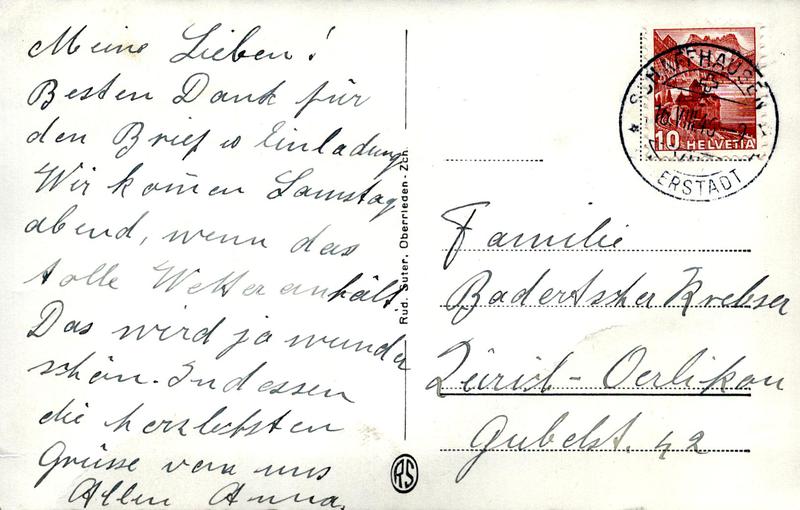 Meine Lieben!
Besten Dank für
den Brief u Einladung
Wir kom̄en Samstag
abend, wenn das
tolle Wetter anhält.
Das wird ja wunder
schön. Indessen
die herzlichsten
Grüsse von uns
Allen Anna.
Rud. Suter, Oberrieden-Zch.
RS
SCHAFFHAUSEN 1
VIII
ERSTADT
10 HELVETIA
Familie
Badertscher Krebser
Zürich-Oerlikon
Gubelst. 42